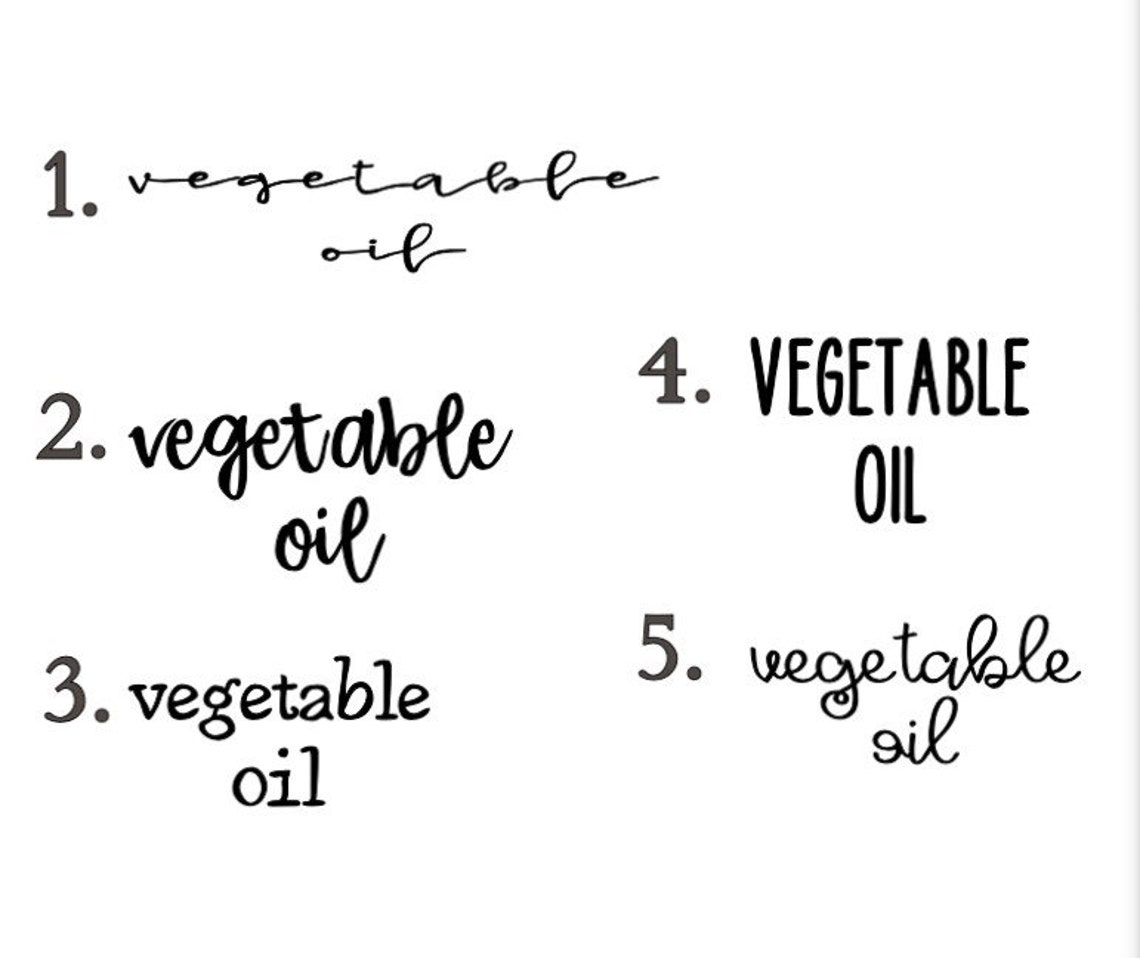 1. vegetable
oil
2. vegetable
oil
3. vegetable
oil
4. VEGETABLE
OIL
5. vegetable
oil